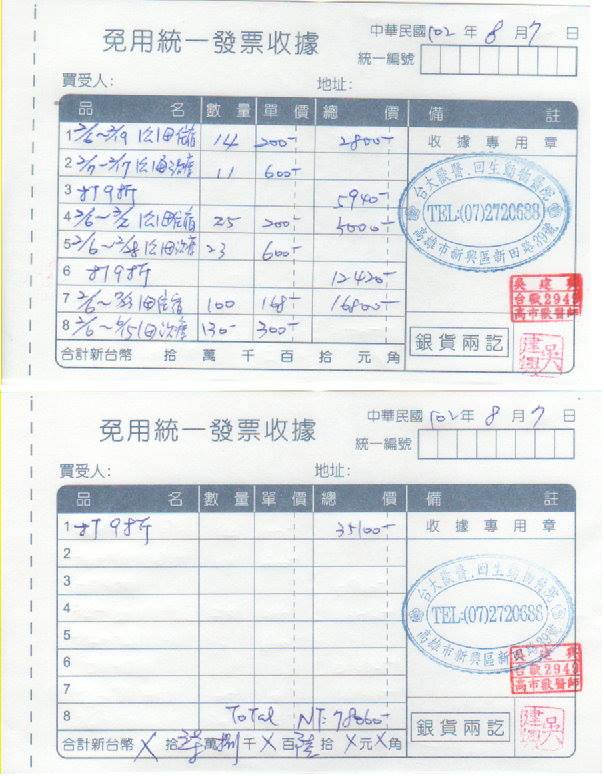 免用統一發票收據
中華民國102年8月7日
統一編號
買受人: 地址:
品名 數量 單價 總價 備註
1 住宿 14 200- 2800- 收據專用章
2 治療 11 600-
3 打9折 5940-
4 住宿 25 200- 5000-
5 治療 23 600-
6 打9折 12420-
7 住宿 100 168- 16800-
8 治療 130- 300-
合計新台幣 拾 萬 千 百 拾 元 角
台大獸醫.回生動物醫院
TEL:(07)2720688
高雄市新興區新田路39號
台獸2949
高市獸醫師
銀貨兩訖
免用統一發票收據
中華民國102年8月7日
統一編號
買受人: 地址:
品名 數量 單價 總價 備註
1 打9折 35100- 收據專用章
2
3
4
5
6
7
8 Total NT: 78060-
合計新台幣 X 拾 柒 萬 捌 千 X 百 陸 拾 X 元 X 角
台大獸醫.回生動物醫院
TEL:(07)2720688
高雄市新興區新田路39號
台獸2949
高市獸醫師
銀貨兩訖